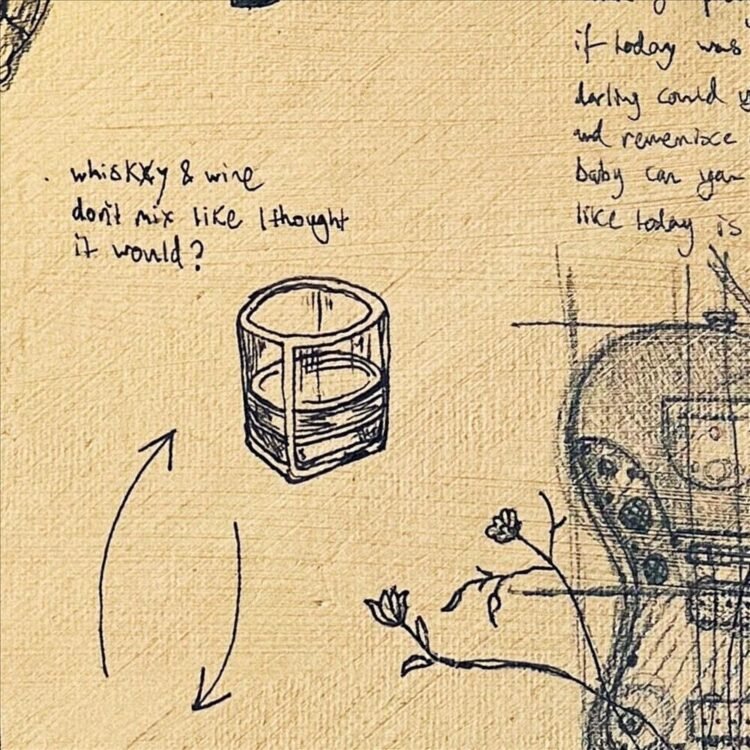 whisky & wine
don't mix like I thought
it would?
if today was
darling could
and remenisce
baby can you
like today is